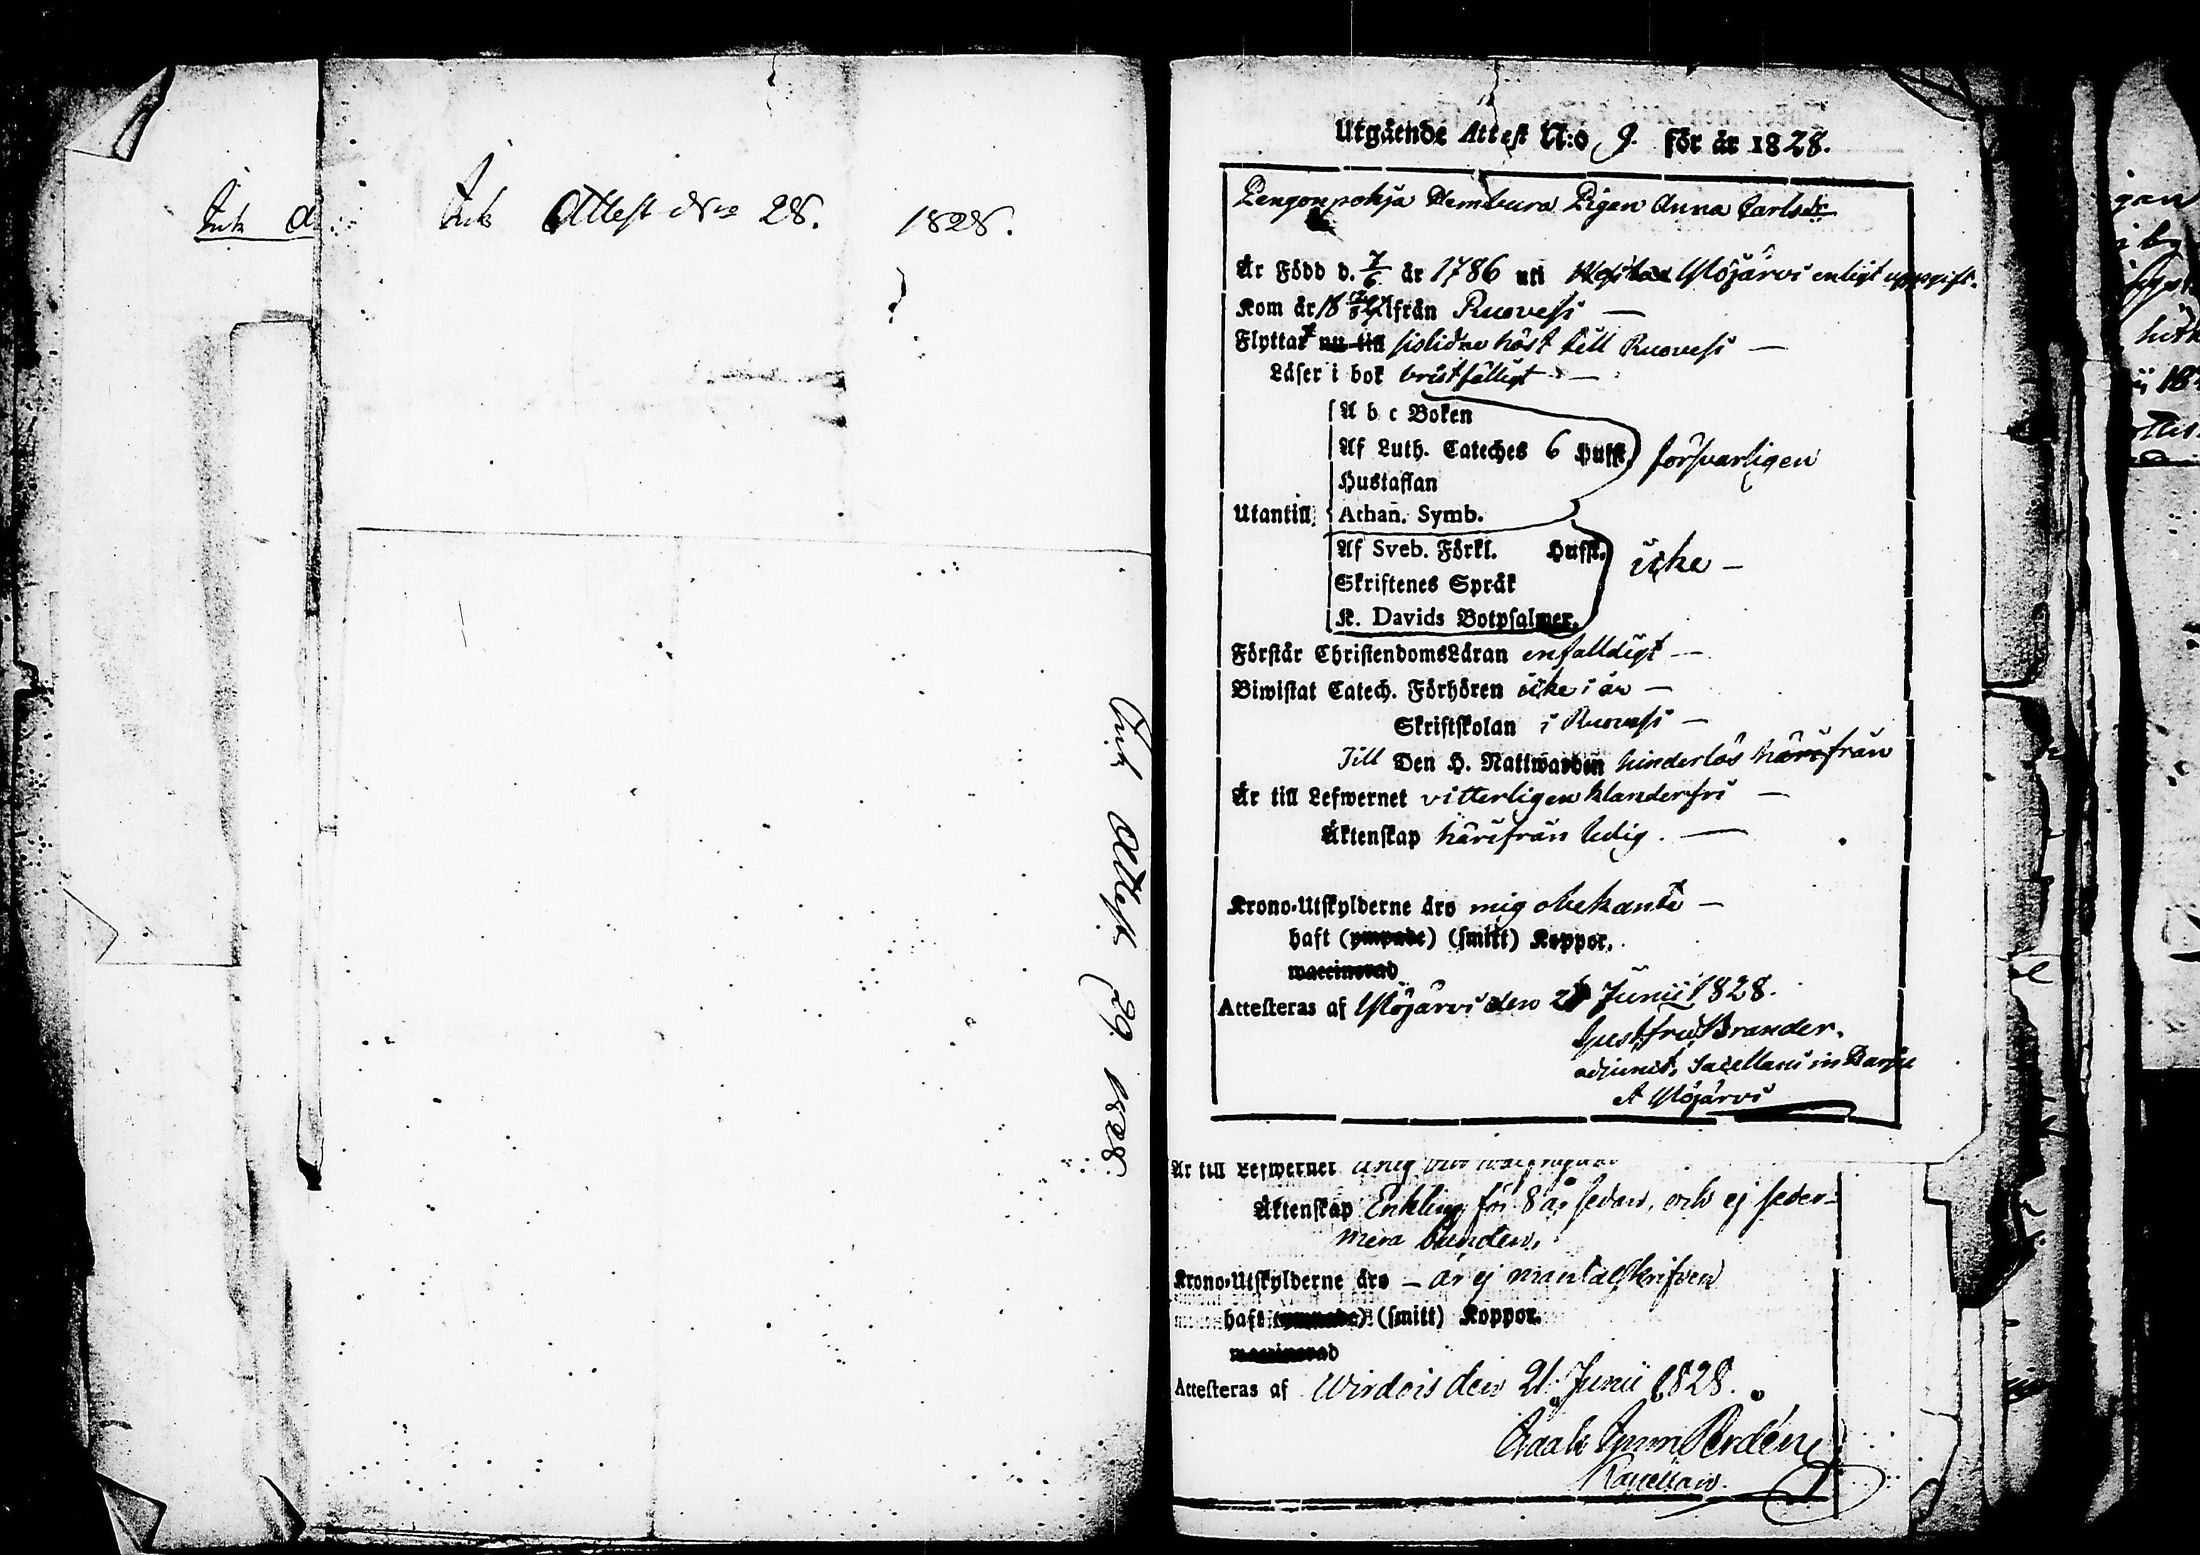 Ink Attest N:o 28. 1828.
Ink Attest 29 1828.
Utgående Attest N:o 9. för år 1828.
Pengonpohja Hembura Pigan Anna Carlsdr
Är Född d. 7/6 år 1786 uti Ylöjärvi enligt uppgift.
Kom år 18 ifrån Ruovesi —
Flyttat nu till sislidne höst till Ruovesi —
Läser i bok bristfälligt —
A b c Boken
Af Luth. Cateches 6 Hufst. försvarligen
Hustaflan
Utantill, Athan. Symb.
Af Sveb. Förkl. Hufst. icke —
Skriftenes Språk
K. Davids Botpsalmer.
Förstår ChristendomsLäran enfalldigt —
Biwistat Catech. Förhören icke i år —
Skriftskolan i Ruovesi —
Till Den H. Nattwarden hinderlös härifrån
Är till Lefwernet vitterligen klanderfri —
Äktenskap härifrån ledig. —
Krono-Utskylderne äro mig obekante —
haft (ympade) (smitt) Koppor.
waccinerad
Attesteras af Ylöjärvi den 21 Junii 1828.
Gust. fred Brander.
adjunct. Sacellani in Birkala
et Ylöjärvi
Är till Lefwernet
Äktenskap Enkling för 8 år sedan, och ej seder-
mera bunden,
Krono-Utskylderne äro — är ej mantalskrifven
haft (ympade) (smitt) Koppor.
waccinerad
Attesteras af Wirdois den 21 Junii 1828.
Kapellan.